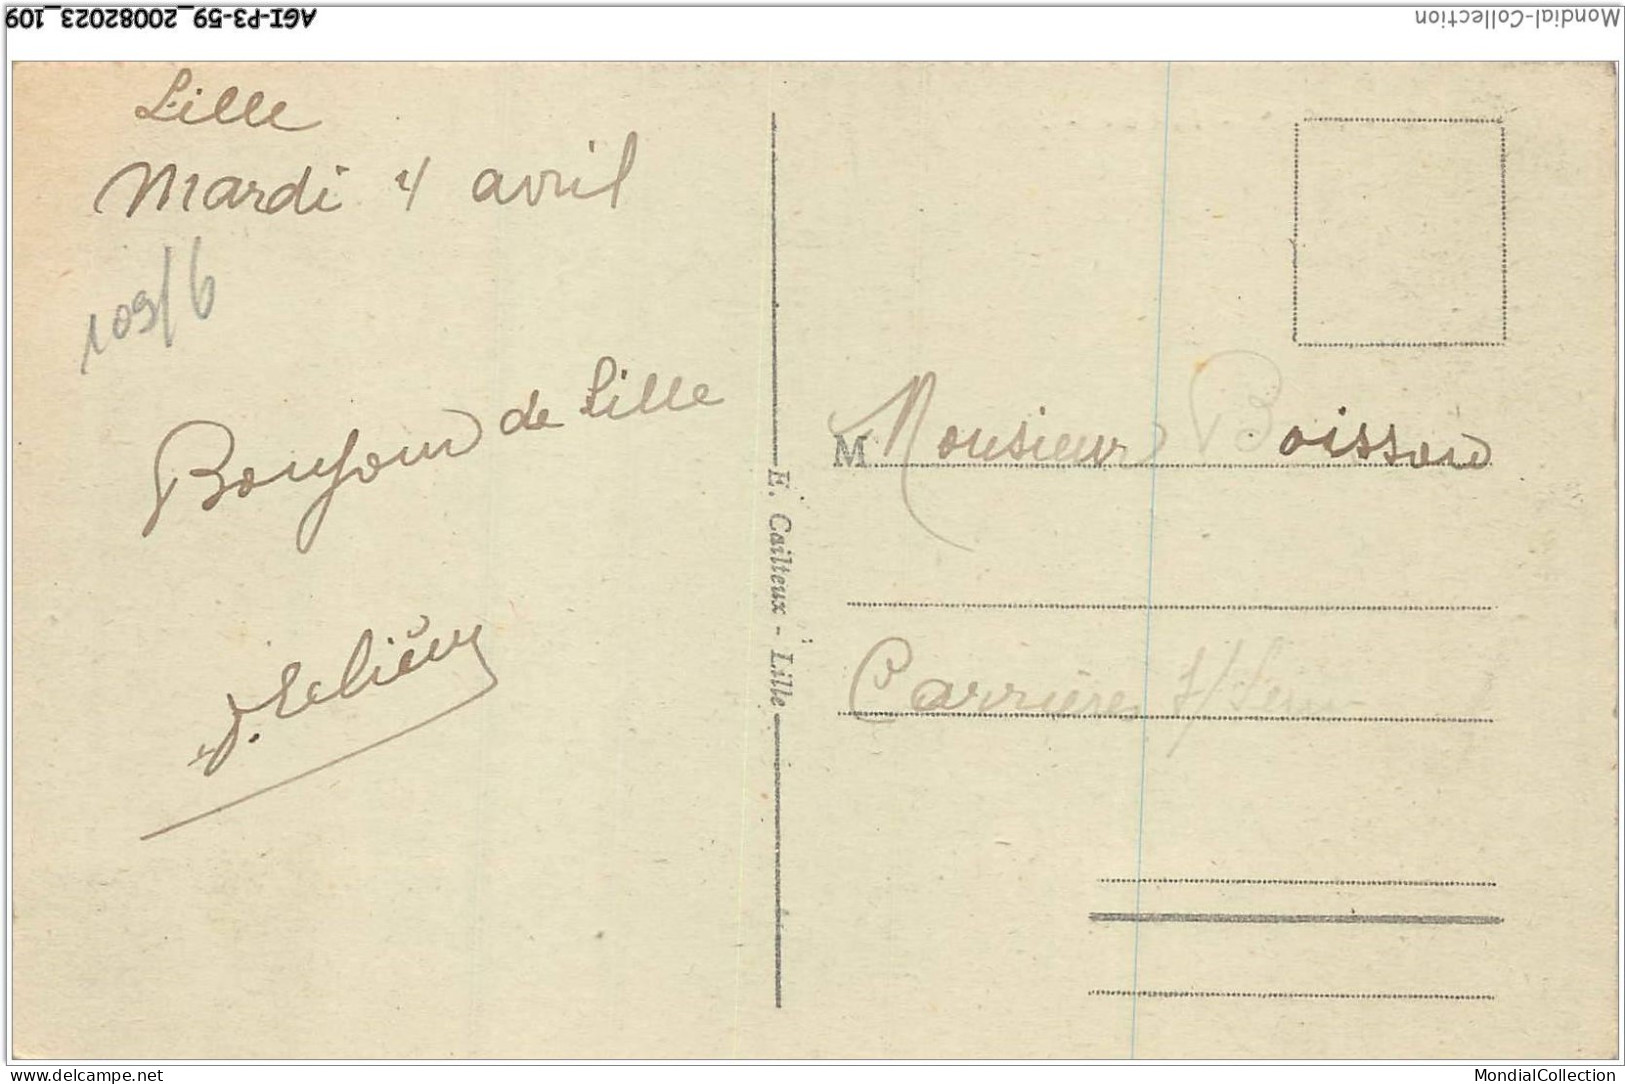 AGI-P3-59_20082023_109
Mondial-Collection
Lille
Mardi 4 avril
109/6
Bonjour de Lille
J. Lelièvre
E. Cailteux - Lille
M Monsieur Boisson
Carrières s/Seine
www.delcampe.net
MondialCollection